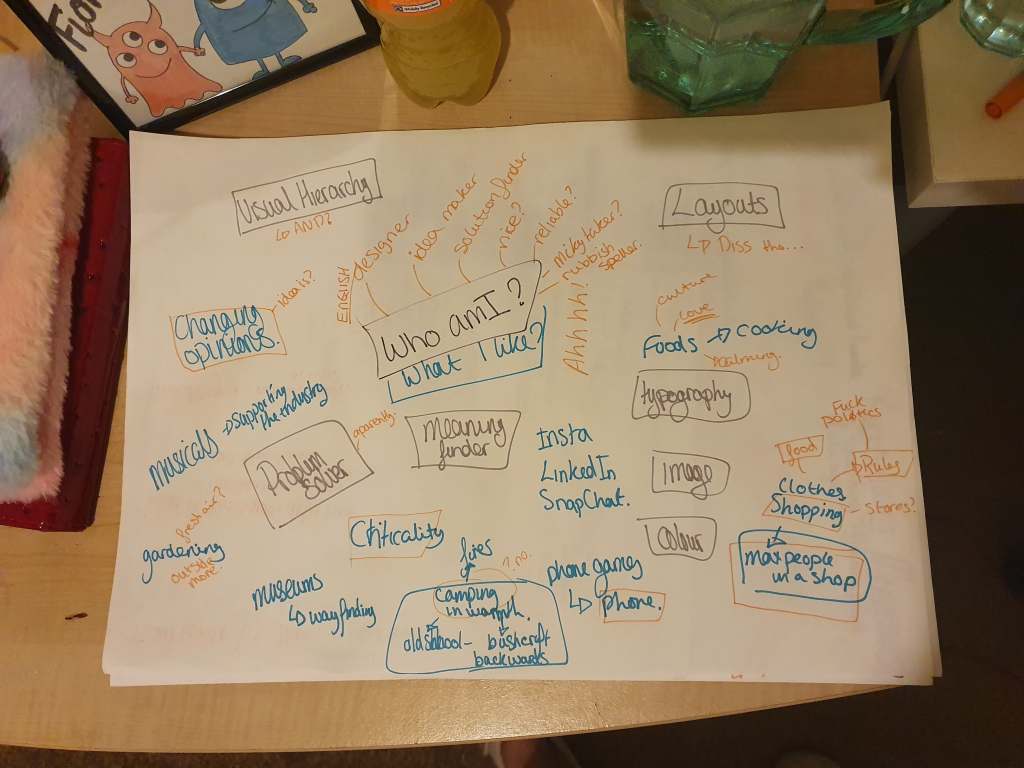 Fion
Visual Hierarchy
↳ AND?
ENGLISH
designer
idea maker
solution finder
nice?
reliable?
micky taker?
rubbish
speller.
Ahhhh!
Layouts
↳ Diss the...
Who am I?
What I like?
Changing
opinions.
ideals?
culture
love
Foods → Cooking
calming
musicals
→ supporting
the industry
Problem
Solver
apparently.
Meaning
finder
typography
Insta
LinkedIn
SnapChat.
image
Colour
Fuck
politics
food
Rules
Clothes
Shopping
Stores?
max people
in a shop
fresh air?
gardening
outside
more?
Criticality
museums
↳ way finding
fires
? no.
camping
in warmth.
old school - bashcraft
backwards
phone games
↳ phone.